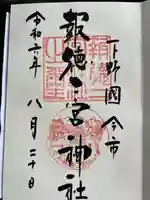 下野國 今市
報徳二宮神社
令和六年 八月二十日